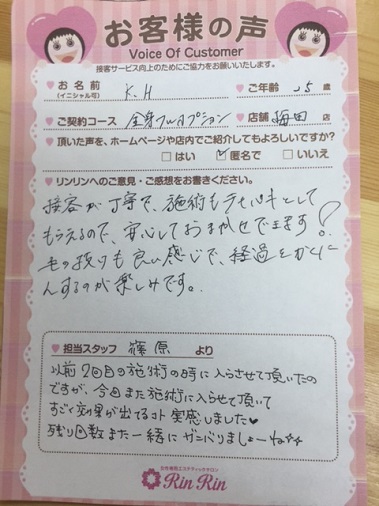 お客様の声
Voice Of Customer
接客サービス向上のためにご協力をお願いいたします。
お名前 K.H ご年齢 25 歳
(イニシャル可)
ご契約コース 全身フルオプション 店舗 梅田 店
頂いた声を、ホームページや店内でご紹介してもよろしいですか?
□はい ☑匿名で □いいえ
リンリンへのご意見・ご感想をお書きください。
接客が丁寧で、施術もテキパキとして
もらえるので、安心しておまかせできます!
毛の抜けも良い感じで、経過をかくに
んするのが楽しみです。
担当スタッフ 篠原 より
以前2回目の施術の時に入らせて頂いたの
ですが、今回また施術に入らせて頂いて
すごく効果が出てるコト実感しました♥
残り回数また一緒にガンバりましょーね☆☆
女性専用エステティックサロン
Rin Rin